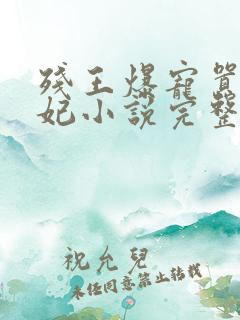 残王爆宠嚣
妃小说完整
祝允兒
未经同意禁止转载